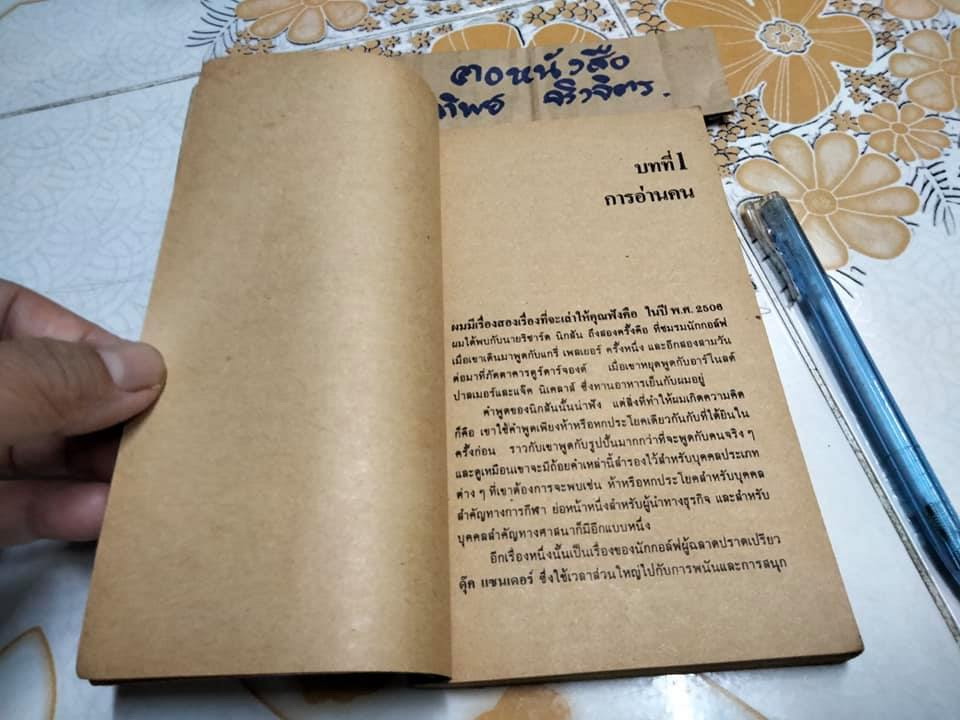 คอหนังสือ
ทิพย์ จิวจิตร.
บทที่ 1
การอ่านคน
ผมมีเรื่องสองเรื่องที่จะเล่าให้คุณฟังคือ ในปี พ.ศ. 2506
ผมได้พบกับนายริชาร์ด นิกสัน ถึงสองครั้งคือ ที่ชมรมนักกอล์ฟ
เมื่อเขาเดินมาพูดกับแกรี่ เพลเยอร์ ครั้งหนึ่ง และอีกสองสามวัน
ต่อมาที่ภัตตาคารตูร์ดาร์จองต์ เมื่อเขาหยุดพูดกับอาร์โนลด์
ปาลเมอร์และแจ็ค นิเคลาส์ ซึ่งทานอาหารเย็นกับผมอยู่
คำพูดของนิกสันนั้นน่าฟัง แต่สิ่งที่ทำให้ผมเกิดความคิด
ก็คือ เขาใช้คำพูดเพียงห้าหรือหกประโยคเดียวกันกับที่ได้ยินใน
ครั้งก่อน ราวกับเขาพูดกับรูปปั้นมากกว่าที่จะพูดกับคนจริง ๆ
และดูเหมือนเขาจะมีถ้อยคำเหล่านี้สำรองไว้สำหรับบุคคลประเภท
ต่าง ๆ ที่เขาต้องการจะพบเช่น ห้าหรือหกประโยคสำหรับบุคคล
สำคัญทางการกีฬา ย่อหน้าหนึ่งสำหรับผู้นำทางธุรกิจ และสำหรับ
บุคคลสำคัญทางศาสนาก็มีอีกแบบหนึ่ง
อีกเรื่องหนึ่งนั้นเป็นเรื่องของนักกอล์ฟผู้ฉลาดปราดเปรียว
ดุ๊ค แซนเดอร์ ซึ่งใช้เวลาส่วนใหญ่ไปกับการพนันและการสนุก